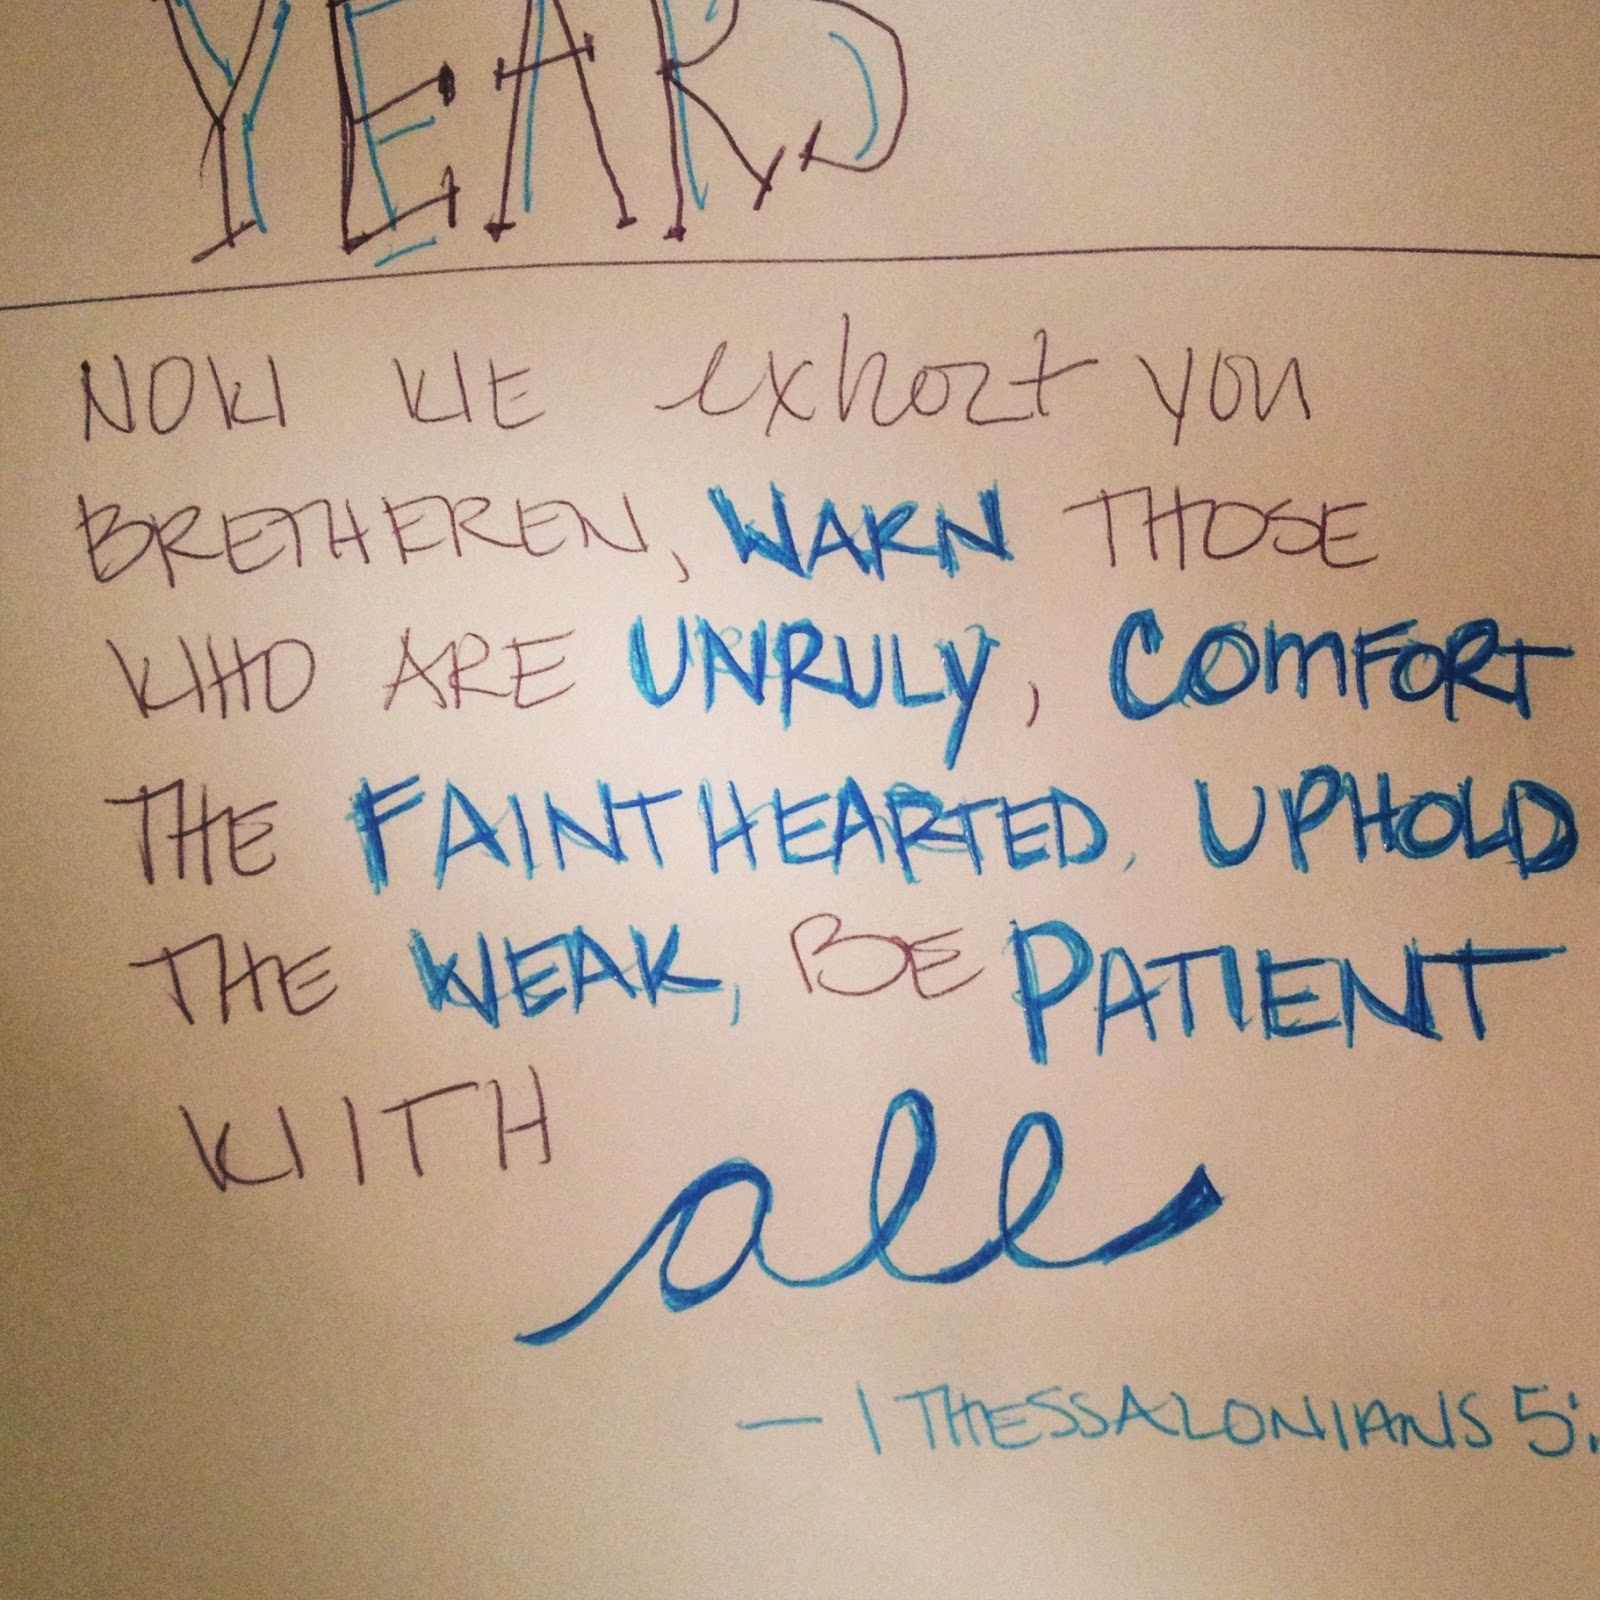 YEARS
NOW WE exhort you
BRETHEREN, WARN THOSE
WHO ARE UNRULY, COMFORT
THE FAINTHEARTED, UPHOLD
THE WEAK, BE PATIENT
WITH
all
— 1 THESSALONIANS 5: